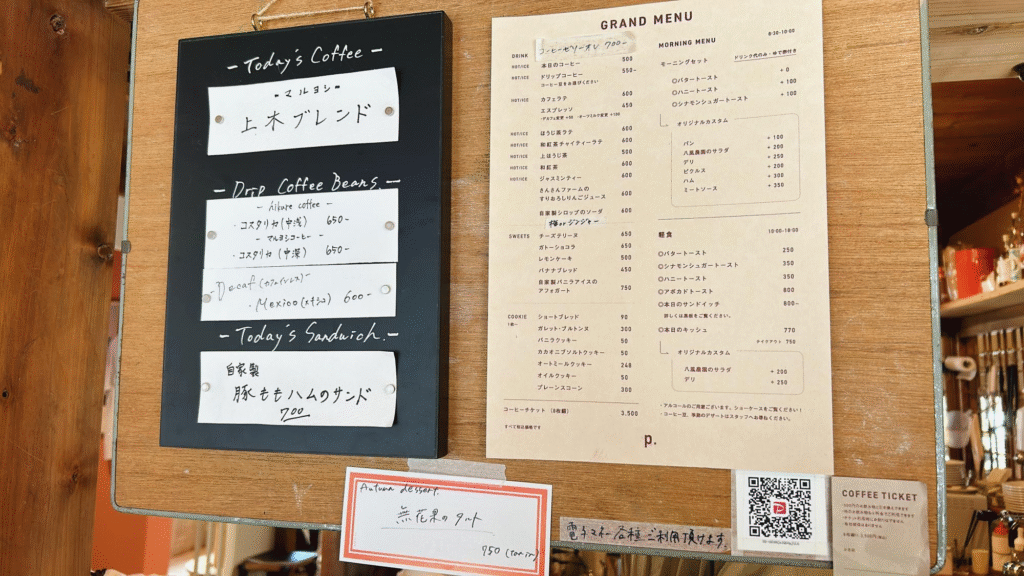 Today's Coffee
マルヨシ
上木ブレンド
Drip Coffee Beans
hikure coffee
・コスタリカ(中浅) 650-
マルヨシコーヒー
・コスタリカ(中深) 650-
Decaf(カフェインレス)
・Mexico(メキシコ) 600-
Today's Sandwich.
自家製
豚ももハムのサンド
700
GRAND MENU
DRINK コーヒーゼリーオレ 700-
HOT/ICE 本日のコーヒー 500
HOT/ICE ドリップコーヒー 550~
コーヒー豆をお選びください
HOT/ICE カフェラテ 600
エスプレッソ 450
・デカフェ変更 +50 ・オーツミルク変更 +100
HOT/ICE ほうじ茶ラテ 600
HOT/ICE 和紅茶チャイティーラテ 600
HOT/ICE 上ほうじ茶 500
HOT/ICE 和紅茶 600
HOT/ICE ジャスミンティー 600
さんさんファームの
すりおろしりんごジュース 600
自家製シロップのソーダ 600
梅orジンジャー
SWEETS チーズテリーヌ 650
ガトーショコラ 450
レモンケーキ 500
バナナブレッド 450
自家製バニラアイスの
アフォガート 750
COOKIE ショートブレッド 90
ガレット・ブルトンヌ 300
バニラクッキー 50
カカオニブソルトクッキー 50
オートミールクッキー 248
オイルクッキー 50
プレーンスコーン 300
コーヒーチケット(8枚綴) 3,500
すべて税込価格です
MORNING MENU 8:30-10:00
モーニングセット ドリンク代のみ・ゆで卵付き
◎バタートースト + 0
◎ハニートースト + 100
◎シナモンシュガートースト + 100
オリジナルカスタム
パン + 100
八風農園のサラダ + 200
デリ + 250
ピクルス + 200
ハム + 300
ミートソース + 350
軽食 10:00-18:00
◎バタートースト 250
◎シナモンシュガートースト 350
◎ハニートースト 350
◎アボカドトースト 800
◎本日のサンドイッチ 800~
詳しくは黒板をご覧ください。
◎本日のキッシュ 770
テイクアウト 750
オリジナルカスタム
八風農園のサラダ + 200
デリ + 250
・アルコールのご用意ございます。ショーケースをご覧ください!
・コーヒー豆、季節のデザートはスタッフへお尋ねください。
p.
Autumn dessert.
無花果のタルト
950 (tax in)
電子マネー各種ご利用頂けます。
COFFEE TICKET